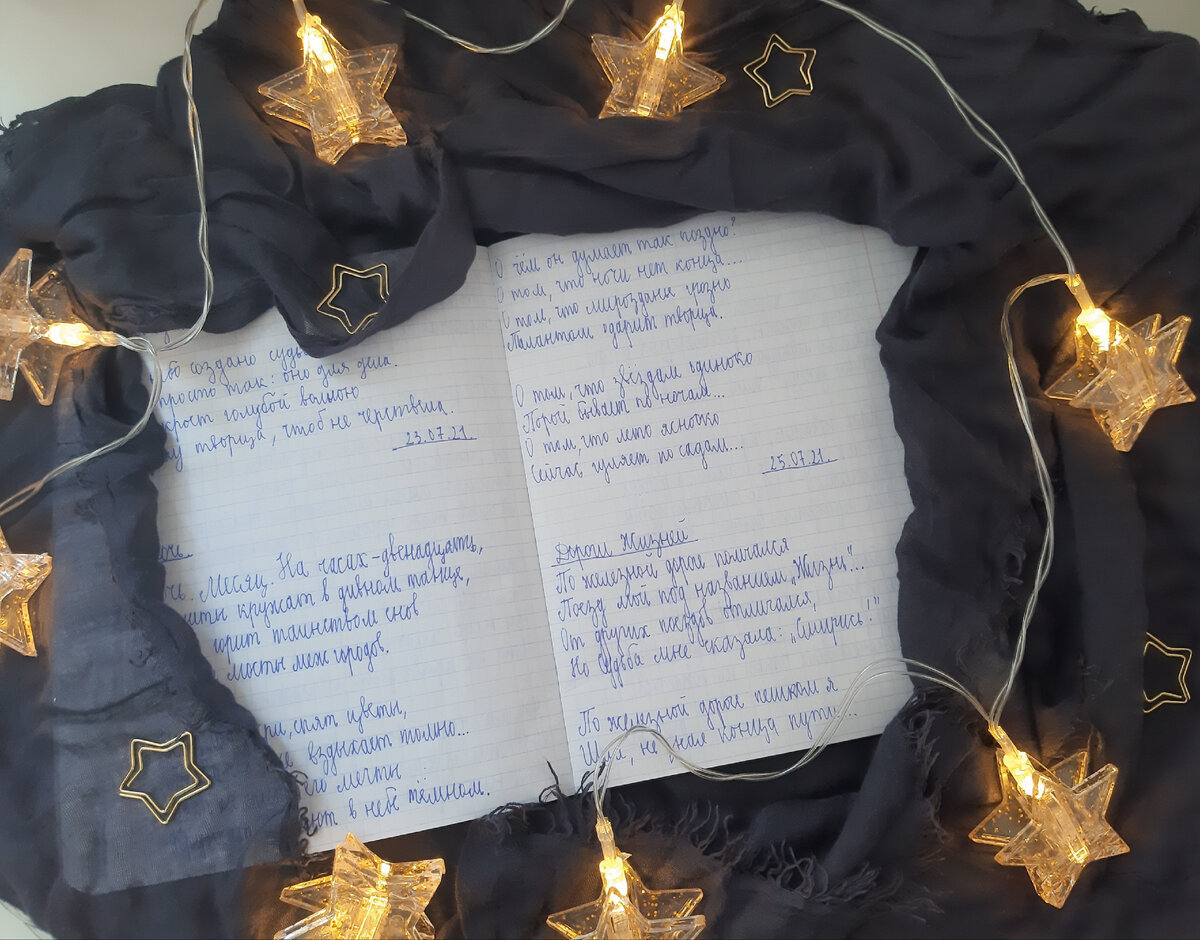 создано судьб
просто так: оно для дела.
голубой волною
творца, чтоб не черствела.
23.07.21.
Месяц. На часах - двенадцать,
кружат в дивном танце,
таинством снов
мосты меж городов.
спят цветы,
вздыхает томно...
мечты
в небе тёмном.
О чём он думает так поздно?
О том, что ночи нет конца...
О том, что мирозданье грозно
Талантом одарит творца.
О том, что звёздам одиноко
Порой бывает по ночам...
О том, что лето
Сейчас гуляет по садам...
25.07.21.
Дороги Жизней
По железной дороге помчался
Поезд мой под названием „Жизни"...
От других поездов отличался,
Но Судьба мне сказала: „Смирись!"
По железной дороге пешком я
Шёл, не зная конца пути...